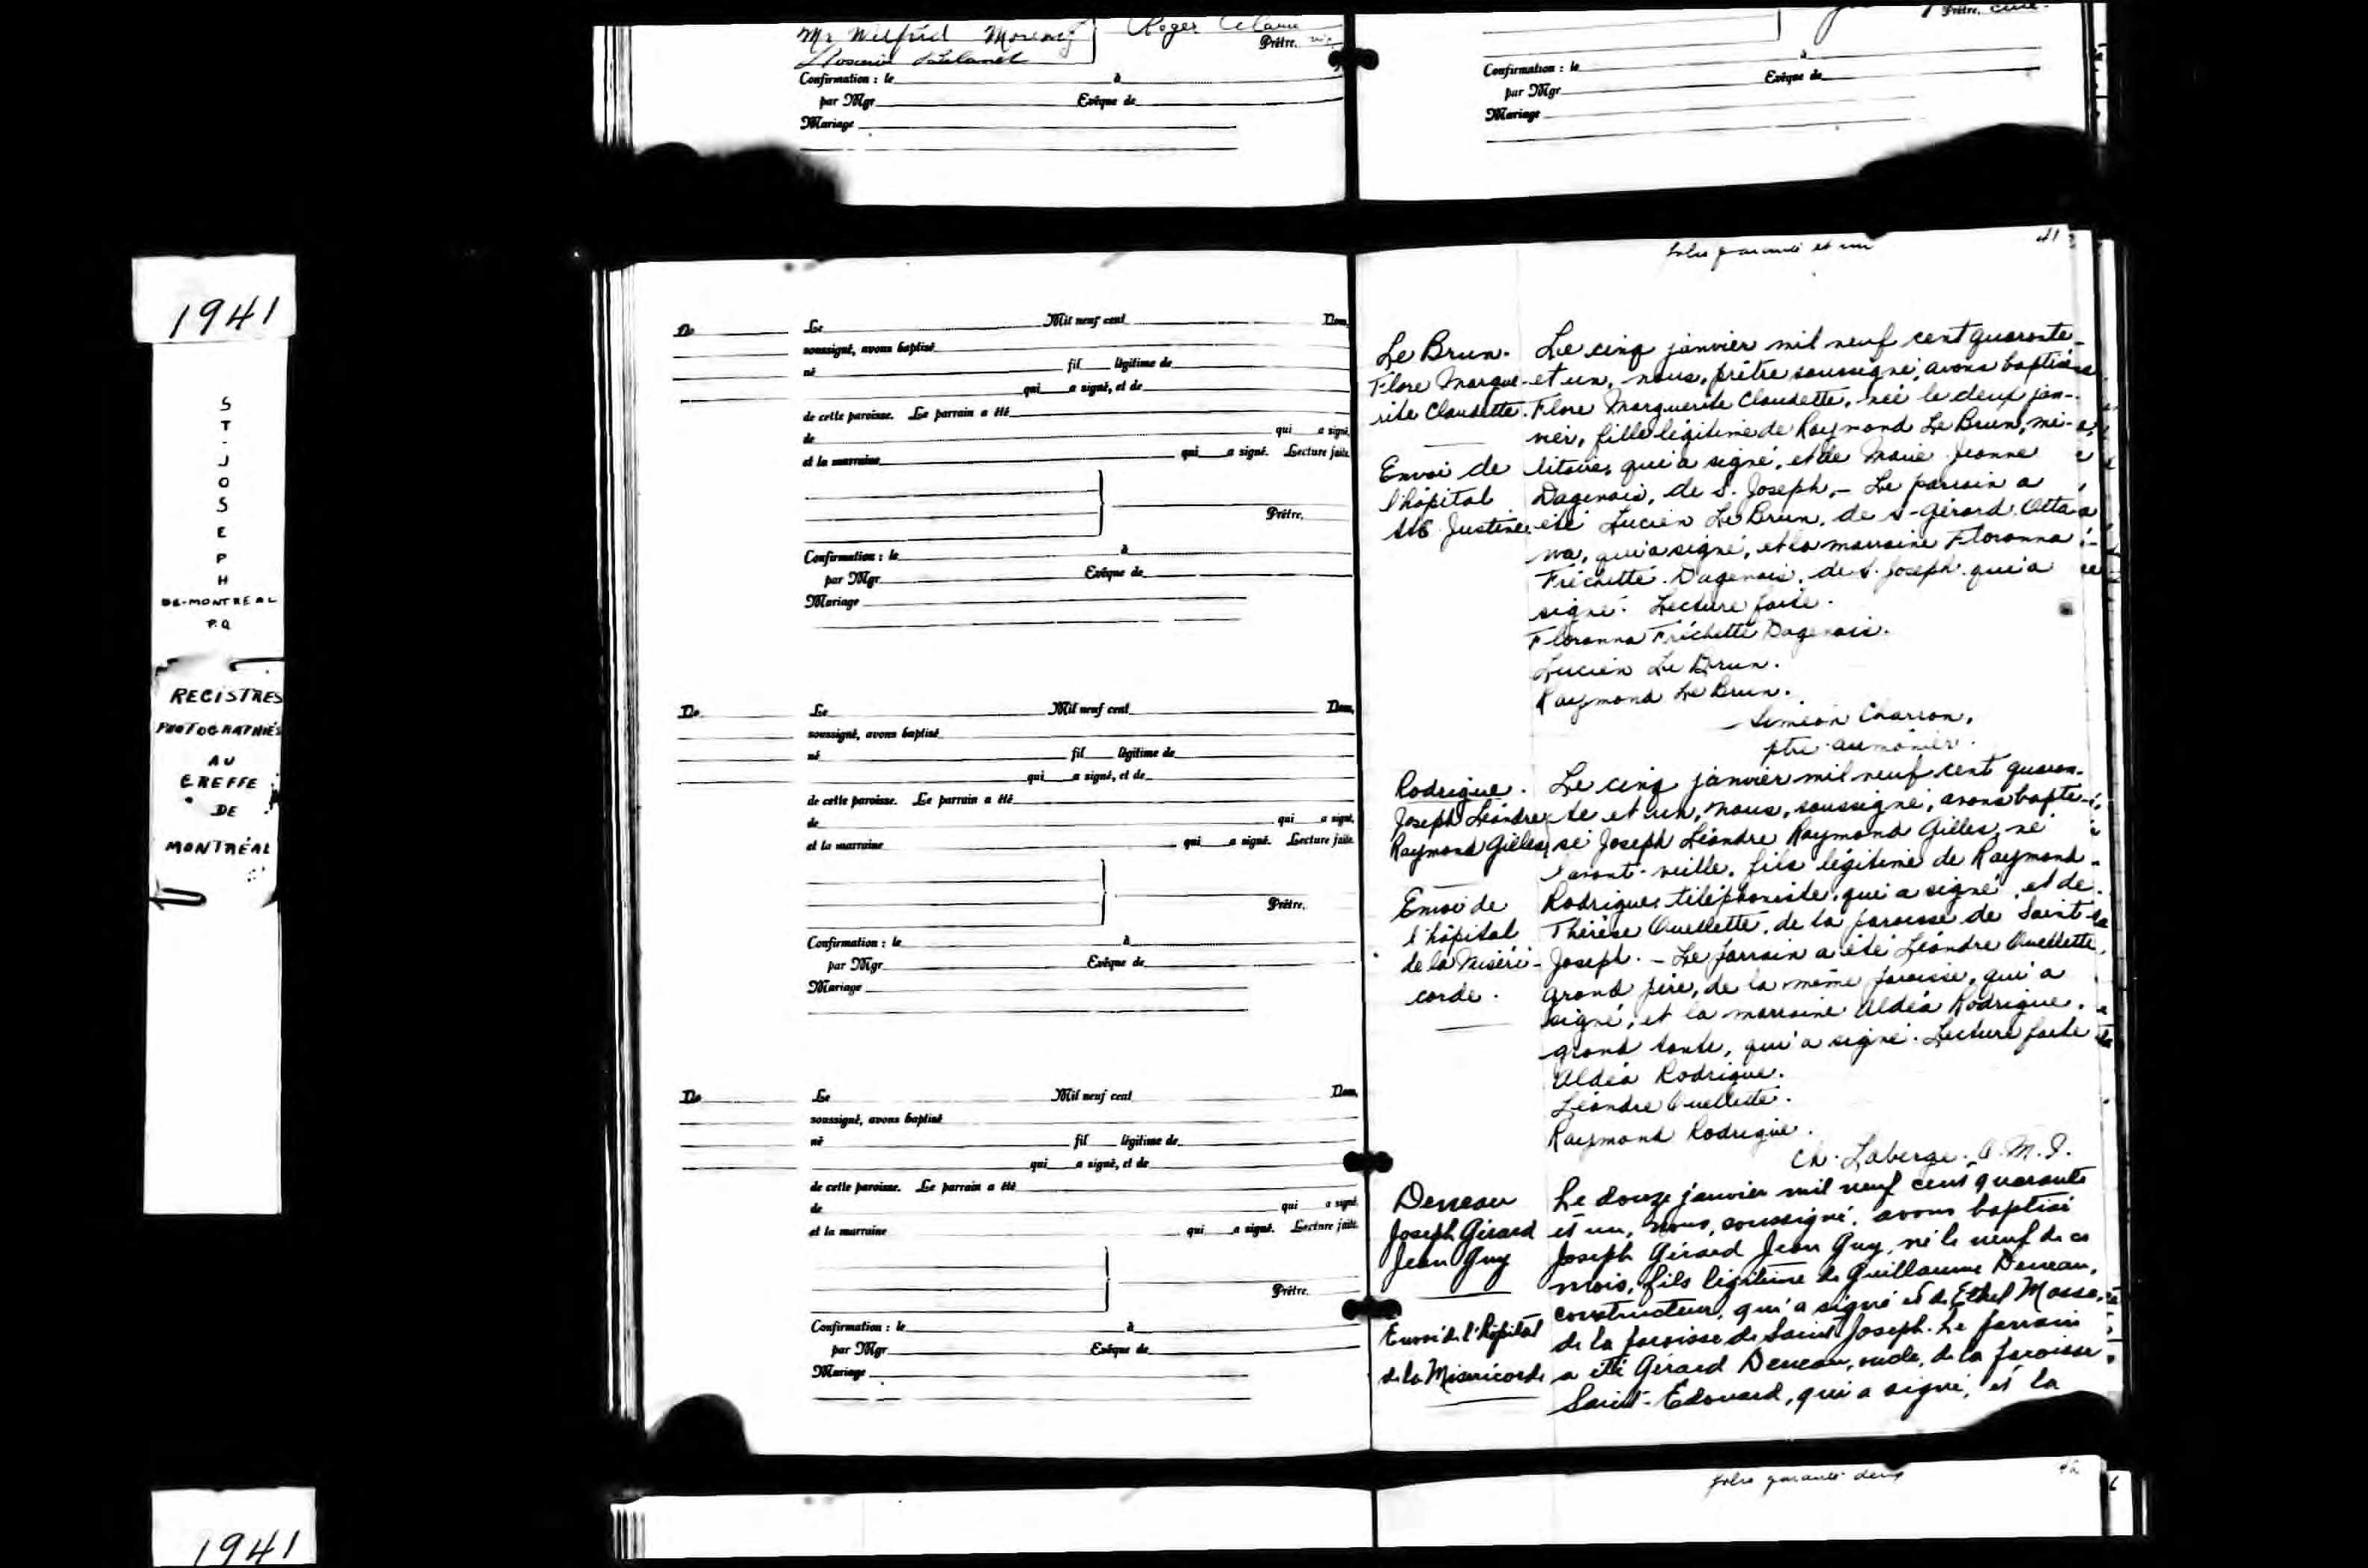 Mr Wilfrid Morency
Roger
Prêtre.
Confirmation : le à
par Mgr Evêque de
Mariage
Prêtre, curé.
Confirmation : le à
par Mgr Evêque de
Mariage
1941
ST-JOSEPH
DE-MONTREAL
P.Q
REGISTRES
PHOTOGRAPHIÉS
AU
GREFFE
DE
MONTRÉAL
1941
No Le Mil neuf cent Nous,
soussigné, avons baptisé
né fil légitime de
qui a signé, et de
de cette paroisse. Le parrain a été
de qui a signé,
et la marraine qui a signé. Lecture faite.
Prêtre.
Confirmation : le à
par Mgr Evêque de
Mariage
No Le Mil neuf cent Nous,
soussigné, avons baptisé
né fil légitime de
qui a signé, et de
de cette paroisse. Le parrain a été
de qui a signé,
et la marraine qui a signé. Lecture faite.
Prêtre.
Confirmation : le à
par Mgr Evêque de
Mariage
No Le Mil neuf cent Nous,
soussigné, avons baptisé
né fil légitime de
qui a signé, et de
de cette paroisse. Le parrain a été
de qui a signé
et la marraine qui a signé. Lecture faite.
Prêtre.
Confirmation : le à
par Mgr Evêque de
Mariage
folio quarante et un 41
Le Brun.
Flore Margue-
rite Claudette.
Envoi de
l'hôpital
Ste Justine.
Le cinq janvier mil neuf cent quarante-
et un, nous, prêtre soussigné, avons baptisé
Flore Marguerite Claudette, née le deux jan-
vier, fille légitime de Raymond Le Brun, mi-
litaire, qui a signé, et de Marie Jeanne
Dagenais, de S. Joseph. - Le parrain a
été Lucien Le Brun, de S-Gérard. Otta-
wa, qui a signé, et la marraine Floranna
Fréchette Dagenais, de S. Joseph qui a
signé. Lecture faite.
Floranna Fréchette Dagenais.
Lucien Le Brun.
Raymond Le Brun.
Siméon Charron,
ptre aumônier.
Rodrigue.
Joseph Léandre
Raymond Gilles
Envoi de
l'hôpital
de la Miséri-
corde.
Le cinq janvier mil neuf cent quaran-
te et un, nous, soussigné, avons bapti-
sé Joseph Léandre Raymond Gilles, né
l'avant-veille, fils légitime de Raymond
Rodrigue, téléphoniste, qui a signé et de
Thérèse Ouellette, de la paroisse de Saint
Joseph. - Le parrain a été Léandre Ouellette,
grand père, de la même paroisse, qui a
signé, et la marraine Aldéa Rodrigue,
grand tante, qui a signé. Lecture faite
Aldéa Rodrigue.
Léandre Ouellette.
Raymond Rodrigue.
Ch. Laberge.
Deneau
Joseph Gérard
Jean Guy
Envoi de l'hôpital
de la Miséricorde
Le douze janvier mil neuf cent quarante
et un, nous, soussigné, avons baptisé
Joseph Gérard Jean Guy, né le neuf de ce
mois, fils légitime de Guillaume Deneau,
constructeur, qui a signé et de Ethel Masse,
de la paroisse de Saint Joseph. Le parrain
a été Gérard Deneau, oncle, de la paroisse
Saint-Edouard, qui a signé, et la
folio quarante deux 42